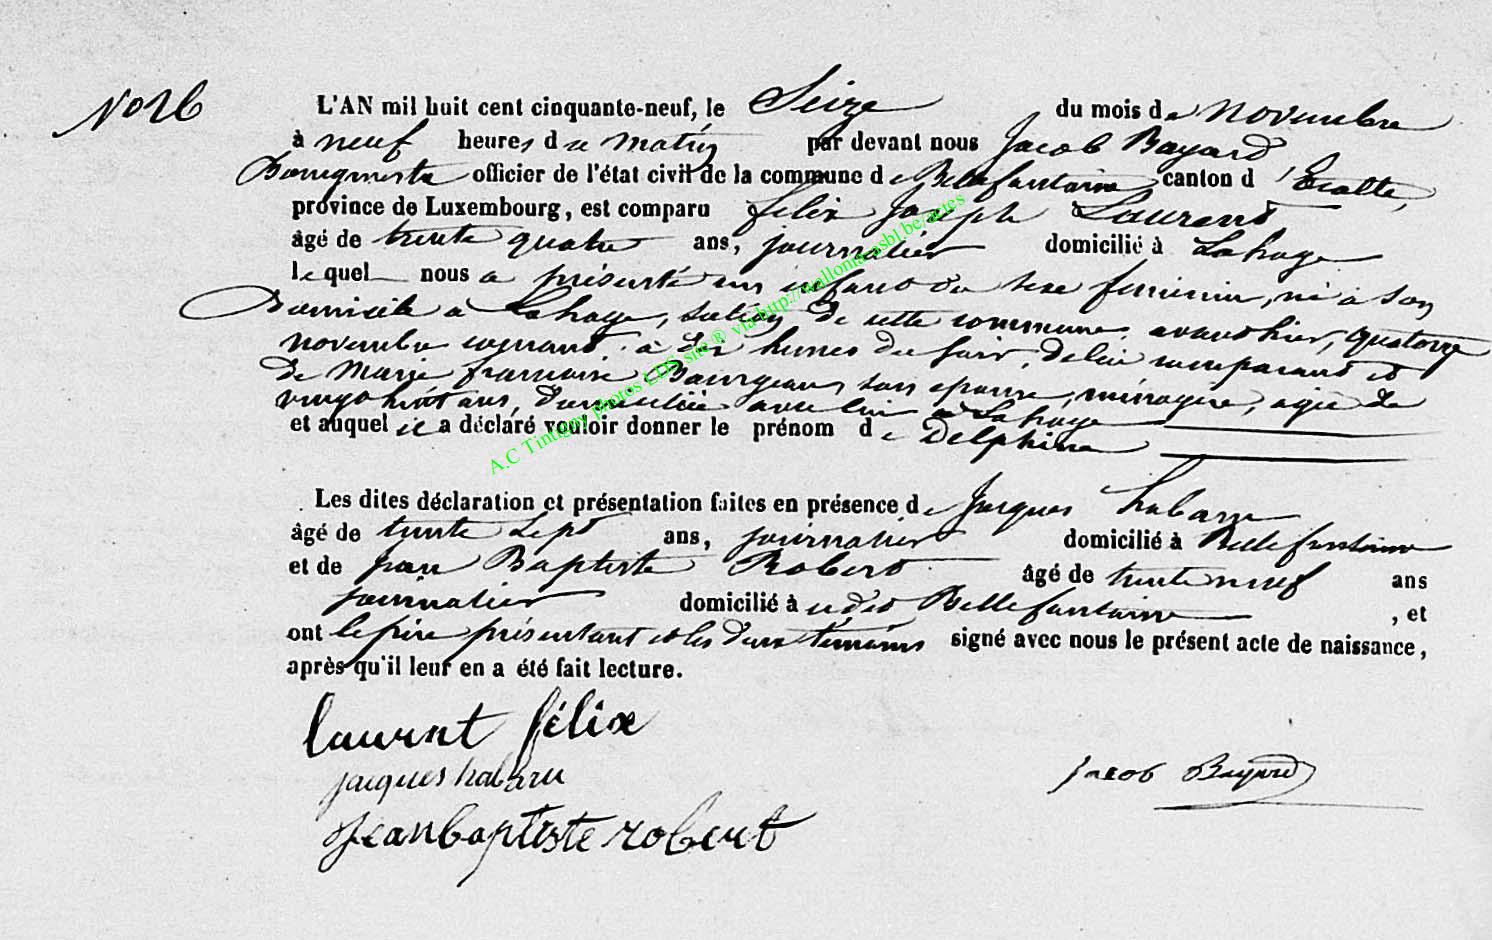 No 26
L'AN mil huit cent cinquante-neuf, le Seize du mois de novembre
à neuf heures du matin par devant nous Jacob Bayard
Bourgmestre officier de l'état civil de la commune de Bellefontaine, canton d'Etalle,
province de Luxembourg, est comparu felix Joseph Laurent
âgé de trente quatre ans, journalier domicilié à Lahage
lequel nous a présenté un enfant du sexe feminin, né à son
Domicile à Lahage, section de cette commune avant hier, quatorze
novembre courant, à dix heures du soir, de lui comparant et
de Marie francoise Bourgeau, son epouse, ménagère, agée de
vingt huit ans, domiciliée avec lui à Lahage
et auquel il a déclaré vouloir donner le prénom de Delphine
Les dites déclaration et présentation faites en présence de Jacques habaru
âgé de trente sept ans, journalier domicilié à Bellefontaine
et de jean Baptiste Robert âgé de trente neuf ans
journalier domicilié à udit Bellefontaine, et
ont le père présentant et les deux témoins signé avec nous le présent acte de naissance,
après qu'il leur en a été fait lecture.
laurent félix
jacques habaru
Jacob Bayard
Jeanbaptiste robert
A.C Tintigny photos LDS site ® via http://wallonia-asbl.be/actes